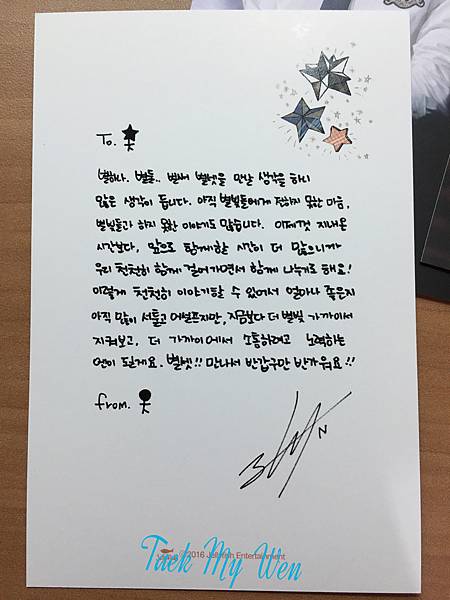 To.
별하나. 별둘.. 벌써 별셋을 만날 생각을 하니
많은 생각이 듭니다. 아직 별빛들에게 전하지 못한 마음,
별빛들과 하지 못한 이야기도 많습니다. 이제껏 지내온
시간보다, 앞으로 함께할 시간이 더 많으니까
우리 천천히 함께 걸어가면서 함께 나누기로 해요!
이렇게 천천히 이야기할 수 있어서 얼마나 좋은지
아직 많이 서툴고 어설프지만, 지금보다 더 별빛 가까이서
지켜보고, 더 가까이에서 소통하려고 노력하는
엔이 될게요. 별셋!! 만나서 반갑구만 반가워요!!
from.
N
©2016 Jellyfish Entertainment
Taek My Wen